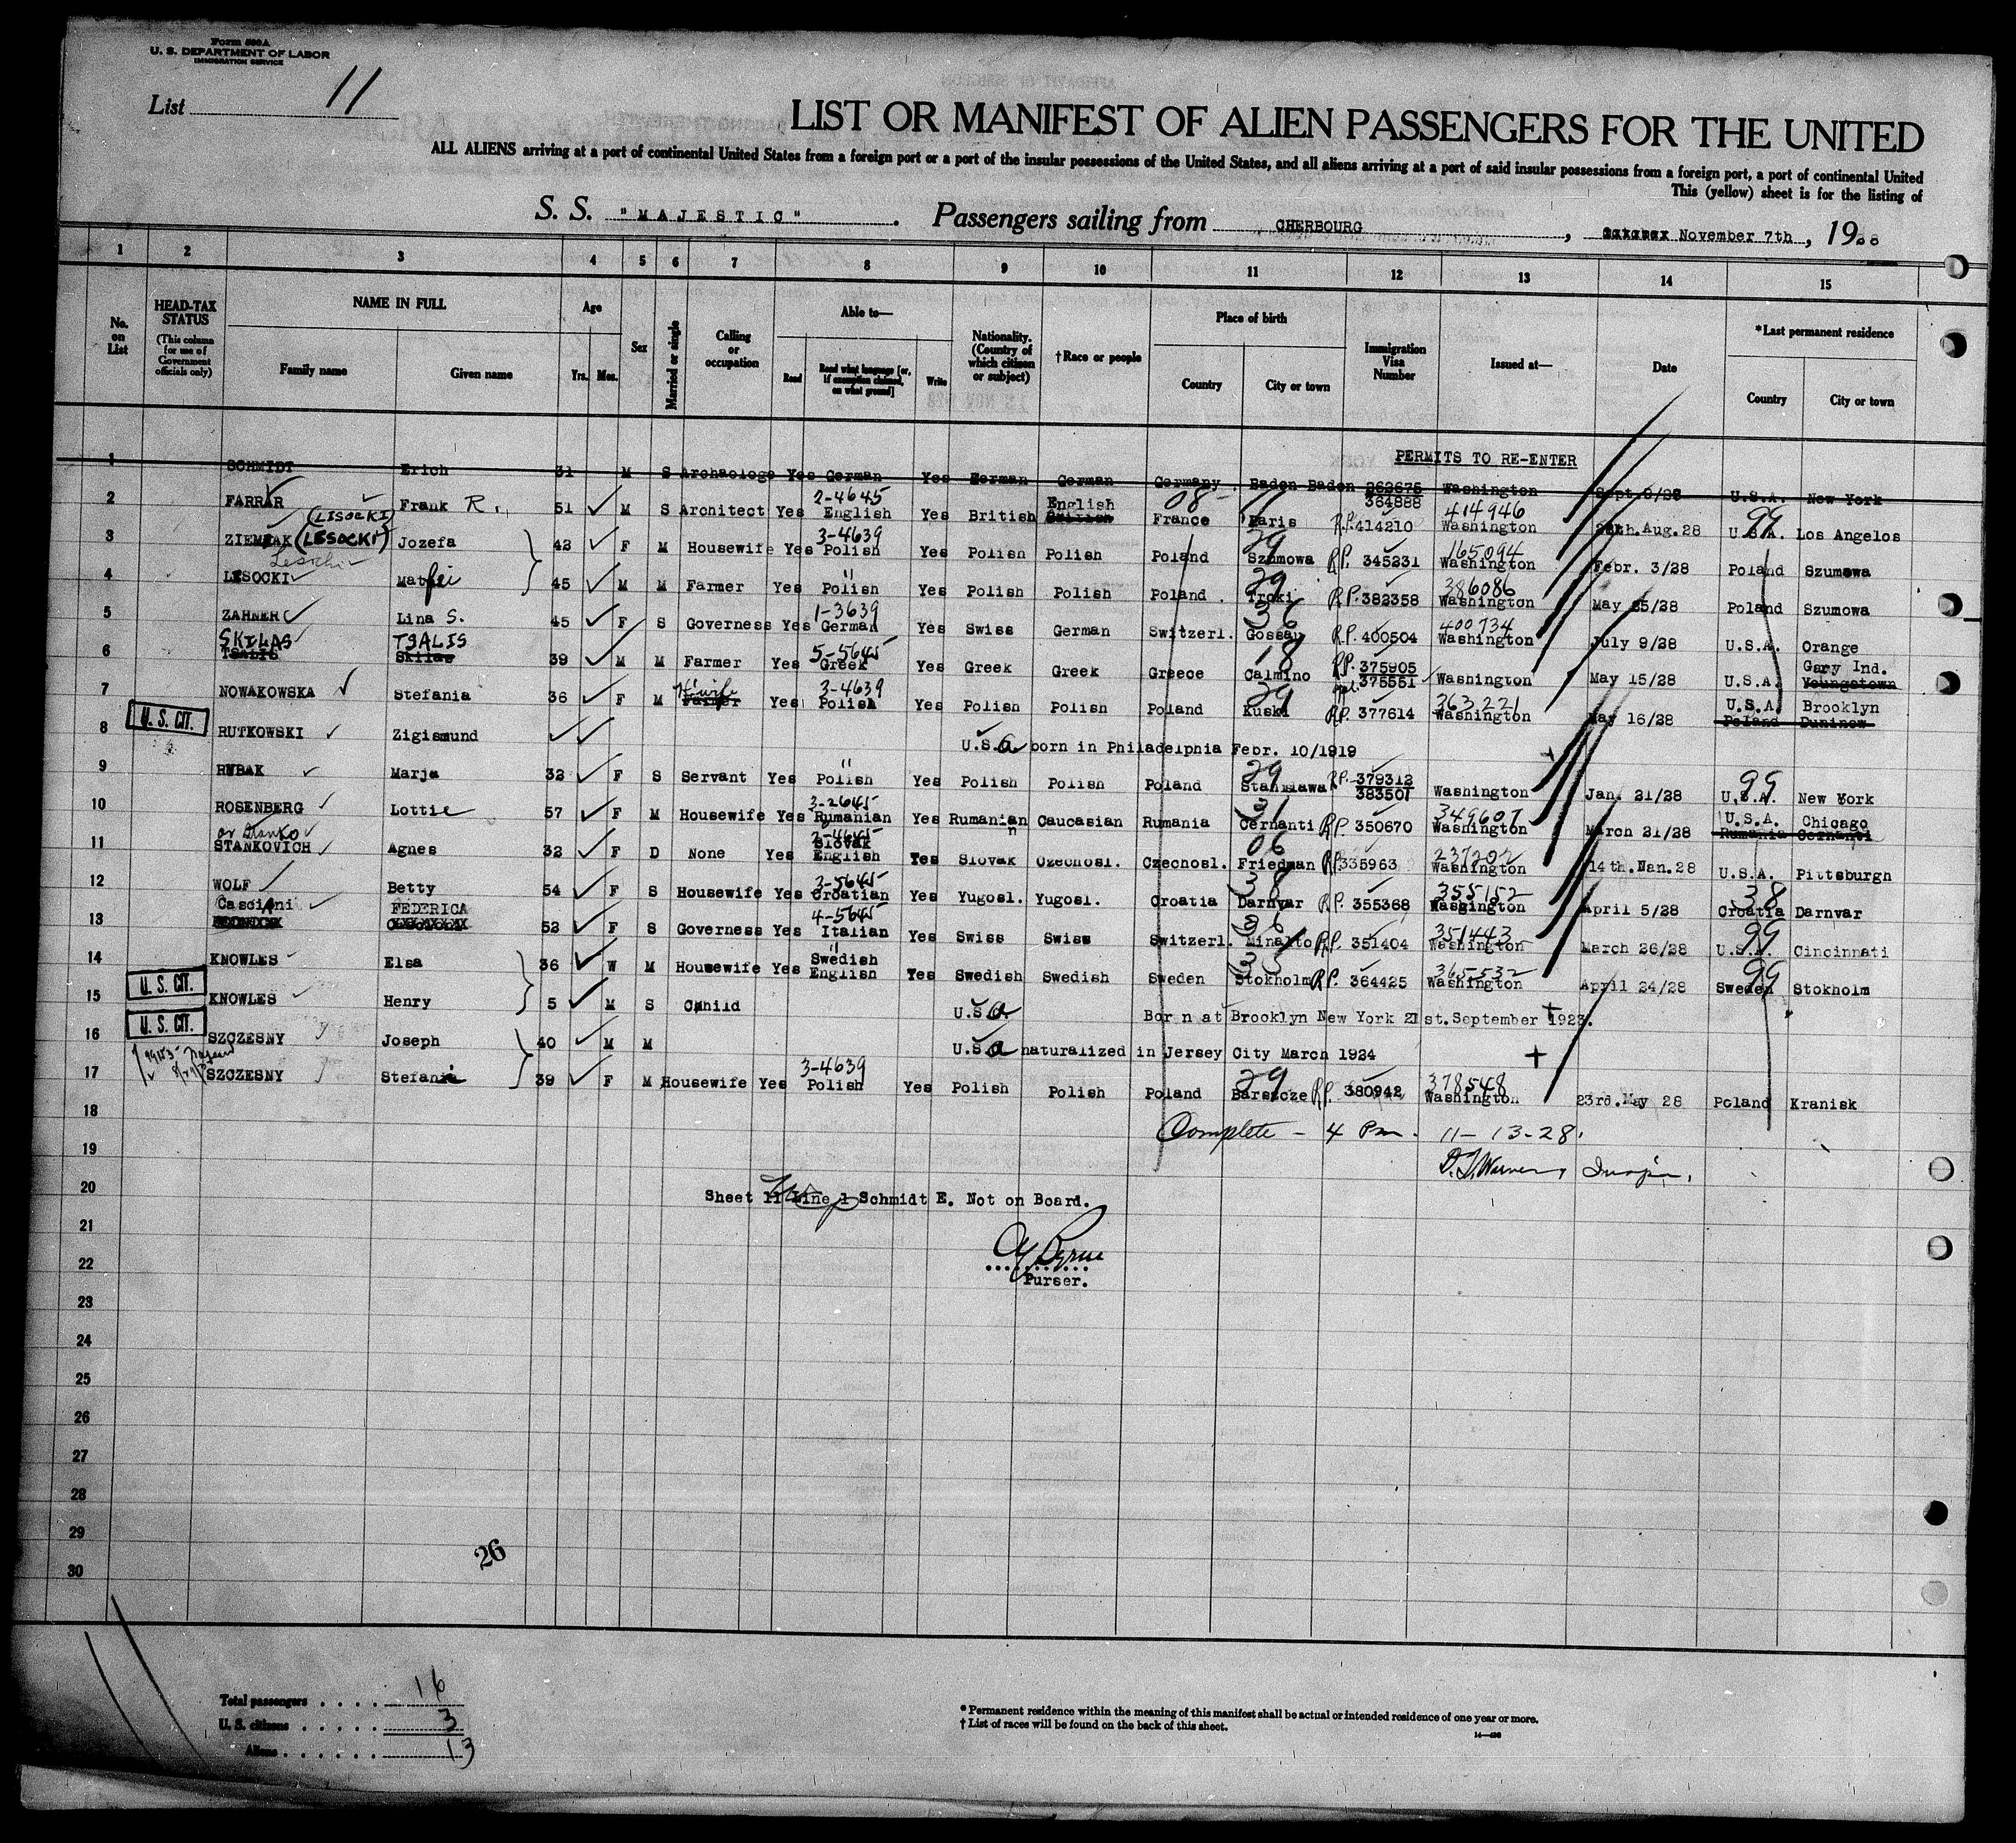 Form 500A
U. S. DEPARTMENT OF LABOR
IMMIGRATION SERVICE
List 11
LIST OR MANIFEST OF ALIEN PASSENGERS FOR THE UNITED
ALL ALIENS arriving at a port of continental United States from a foreign port or a port of the insular possessions of the United States, and all aliens arriving at a port of said insular possessions from a foreign port, a port of continental United
This (yellow) sheet is for the listing of
S. S. "MAJESTIC". Passengers sailing from CHERBOURG, November 7th, 1928
1 2 3 4 5 6 7 8 9 10 11 12 13 14 15
No. on List
HEAD-TAX STATUS (This column for use of Government officials only)
NAME IN FULL Family name Given name
Age Yrs. Mos.
Sex
Married or single
Calling or occupation
Able to— Read Read what language [or, if exemption claimed, on what ground] Write
Nationality. (Country of which citizen or subject)
†Race or people
Place of birth Country City or town
Immigration Visa Number
Issued at—
Date
*Last permanent residence Country City or town
PERMITS TO RE-ENTER
1 SCHMIDT Erich 31 M S Archaologe Yes German Yes German German Germany Baden Baden 362675 Washington Sept. U.S.A. New York
364888
2-4645 English 08 414946 99
2 FARRAR Frank R. 51 M S Architect Yes English Yes British France Paris R.P. 414210 Washington Aug. 28 U.S.A. Los Angelos
(LISOCKI) 3-4639 29 165094
3 ZIEMIAK (LESOCKI) Jozefa 42 F M Housewife Yes Polish Yes Polish Polish Poland Szumowa R.P. 345231 Washington Febr. 3/28 Poland Szumowa
" 29 386086
4 LESOCKI Matfei 45 M M Farmer Yes Polish Yes Polish Polish Poland Troki R.P. 382358 Washington May 25/28 Poland Szumowa
1-3639 36 400734
5 ZAHNER Lina S. 45 F S Governess Yes German Yes Swiss German Switzerl. Gossau R.P. 400504 Washington July 9/28 U.S.A. Orange
SKILAS TSALIS 5-5645 18 R.P. 375905 Gary Ind.
6 TSALIS Skilas 39 M M Farmer Yes Greek Yes Greek Greek Greece Calmino 375551 Washington May 15/28 U.S.A. Youngstown
H'wife 3-4639 29 363221 U.S.A. Brooklyn
7 NOWAKOWSKA Stefania 36 F M Farmer Yes Polish Yes Polish Polish Poland Kuski R.P. 377614 Washington May 16/28 Poland Duninow
U. S. CIT.
8 RUTKOWSKI Zigismund U.S.A born in Philadelphia Febr. 10/1919
" 29 R.P. 379312 99
9 RYBAK Marja 32 F S Servant Yes Polish Yes Polish Polish Poland Stanislawa 383501 Washington Jan. 21/28 U.S.A. New York
3-2645 31 349607 U.S.A. Chicago
10 ROSENBERG Lottie 57 F M Housewife Yes Rumanian Yes Rumanian Caucasian Rumania Cernanti R.P. 350670 Washington March 21/28 Rumania Cernanti
or Stanko 2-4645 Slovak 06 237202
11 STANKOVICH Agnes 32 F D None Yes English Yes Slovak Czechosl. Czechosl. Friedman R.P. 335963 Washington 14th. 28 U.S.A. Pittsburgh
3-5645 38 355152 38
12 WOLF Betty 54 F S Housewife Yes Croatian Yes Yugosl. Yugosl. Croatia Darnvar R.P. 355368 Washington April 5/28 Croatia Darnvar
Casciani FEDERICA 4-5645 36 351443 99
13 52 F S Governess Yes Italian Yes Swiss Swiss Switzerl. R.P. 351404 Washington March 26/28 U.S.A. Cincinnati
" Swedish 33 365532 99
14 KNOWLES Elsa 36 W M Housewife Yes English Yes Swedish Swedish Sweden Stokholm R.P. 364425 Washington April 24/28 Sweden Stokholm
U. S. CIT.
15 KNOWLES Henry 5 M S Child U.S.A. Born at Brooklyn New York 21st. September 1923.
U. S. CIT.
16 SZCZESNY Joseph 40 M M U.S.A naturalized in Jersey City March 1924
3-4639 29 378548
17 SZCZESNY Stefania 39 F M Housewife Yes Polish Yes Polish Polish Poland Barszcze R.P. 380942 Washington 23rd. May 28 Poland Kranisk
18
Complete - 4 Pm. 11-13-28.
19
20
Sheet 11 Line 1 Schmidt E. Not on Board.
21
22
Purser.
23
24
25
26
27
28
29
26
30
Total passengers . . . . 16
U. S. citizens . . . . . 3
Aliens . . . . . . 13
* Permanent residence within the meaning of this manifest shall be actual or intended residence of one year or more.
† List of races will be found on the back of this sheet.